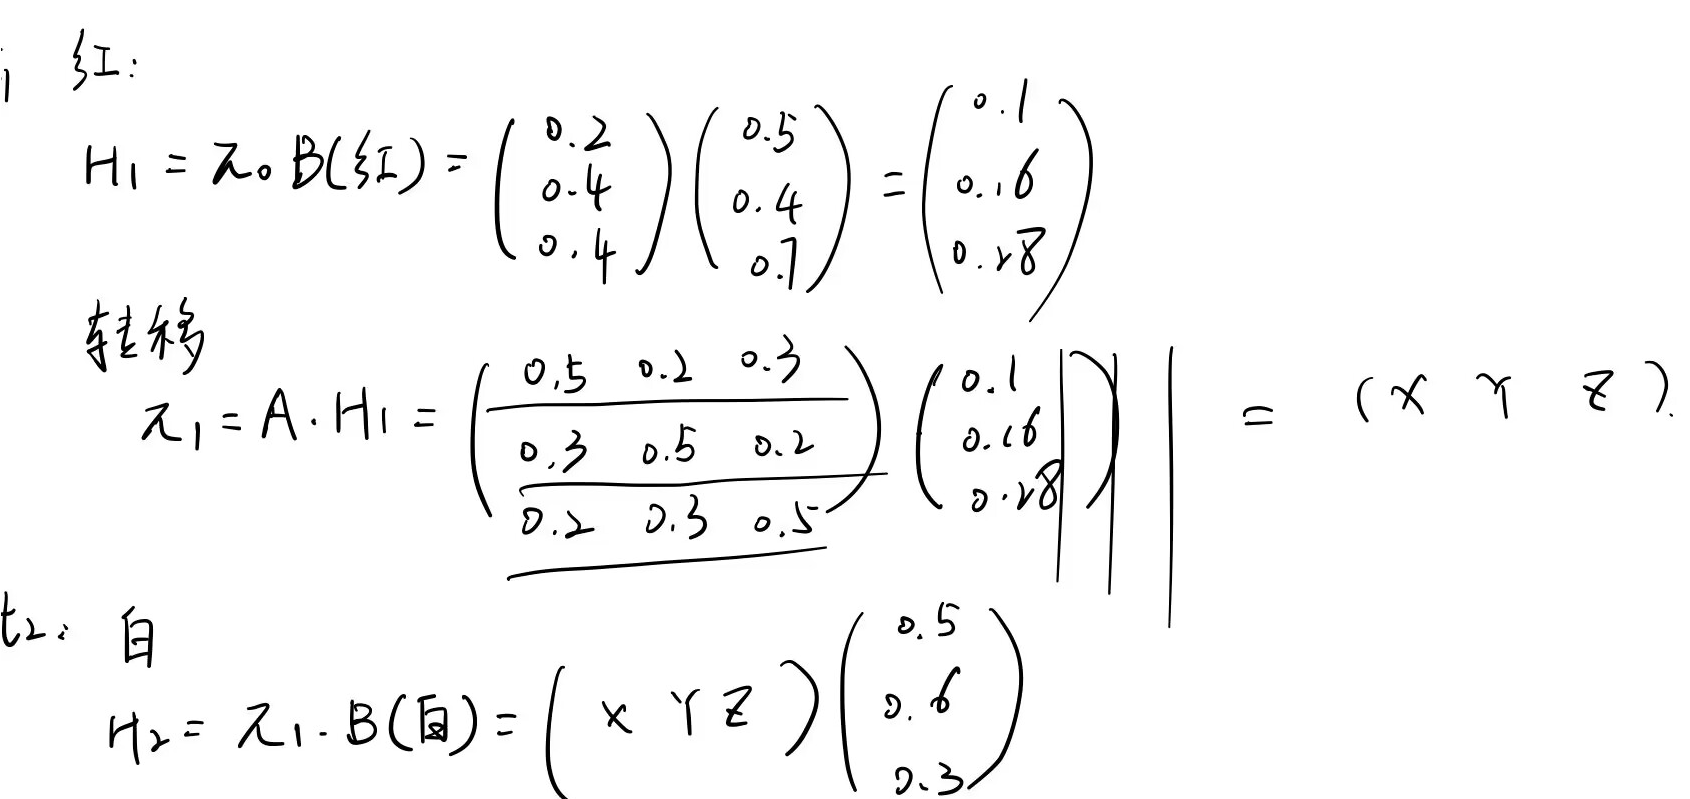 红:
H₁ = π₀ B(红) = (0.2 0.4 0.4) (0.5 0.4 0.7) = (0.1 0.16 0.28)
转移
π₁ = A · H₁ = (0.5 0.2 0.3 0.3 0.5 0.2 0.2 0.3 0.5) (0.1 0.16 0.28) = (X Y Z).
t₂: 白
H₂ = π₁ · B(白) = (X Y Z) (0.5 0.6 0.3)